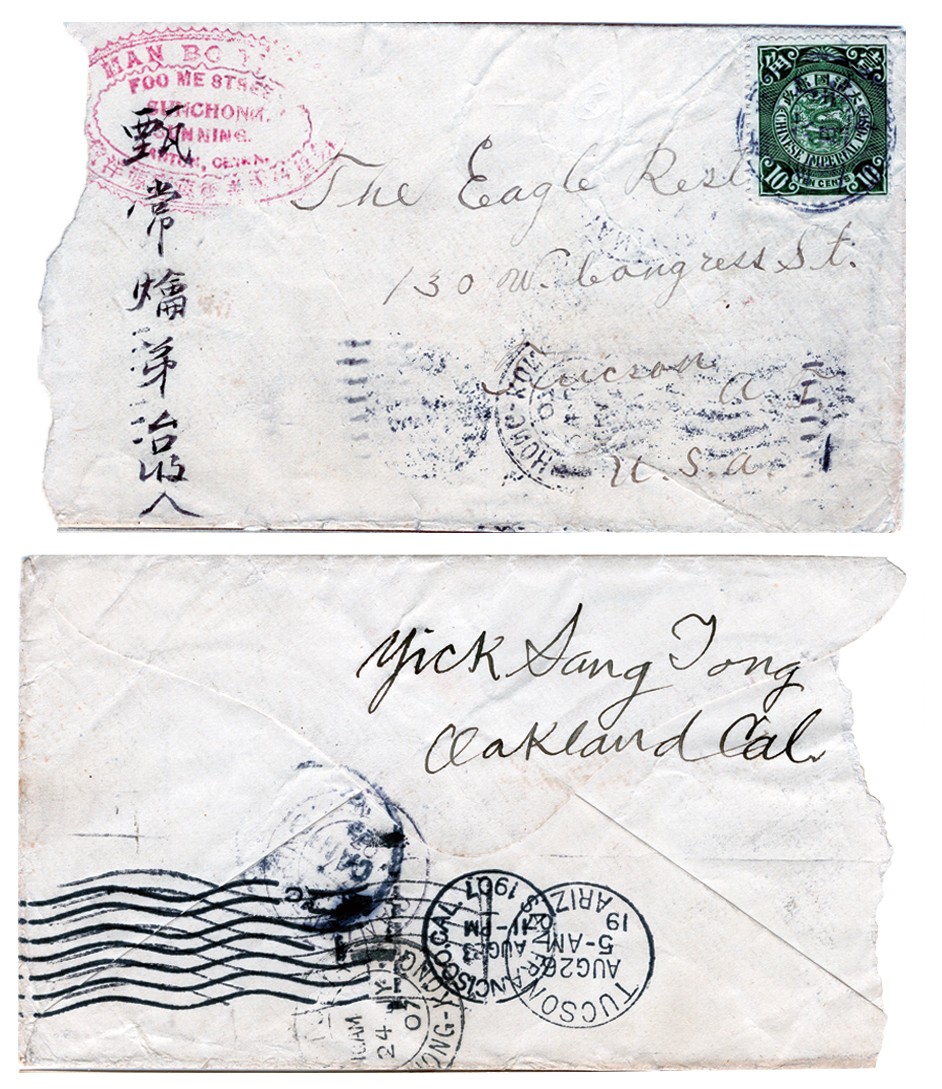 MAN BO
FOO ME STREE
SUNCHONG,
SUNNING.
CANTON, CHINA.
甄常爚弟治收入
大清國郵政
CHINESE IMPERIAL POST
10 TEN CENTS 10
The Eagle Rest
130 W. Congress St.
Tucson A. T.
U. S. a.
HONG-KO
Yick Sang Tong
Oakland Cal.
SAN FRANCISCO, CAL.
AUG 23
11-PM
1907
TUCSON
AUG 26
5-AM
19
ARIZ
ONG-KONG
AM
24
07